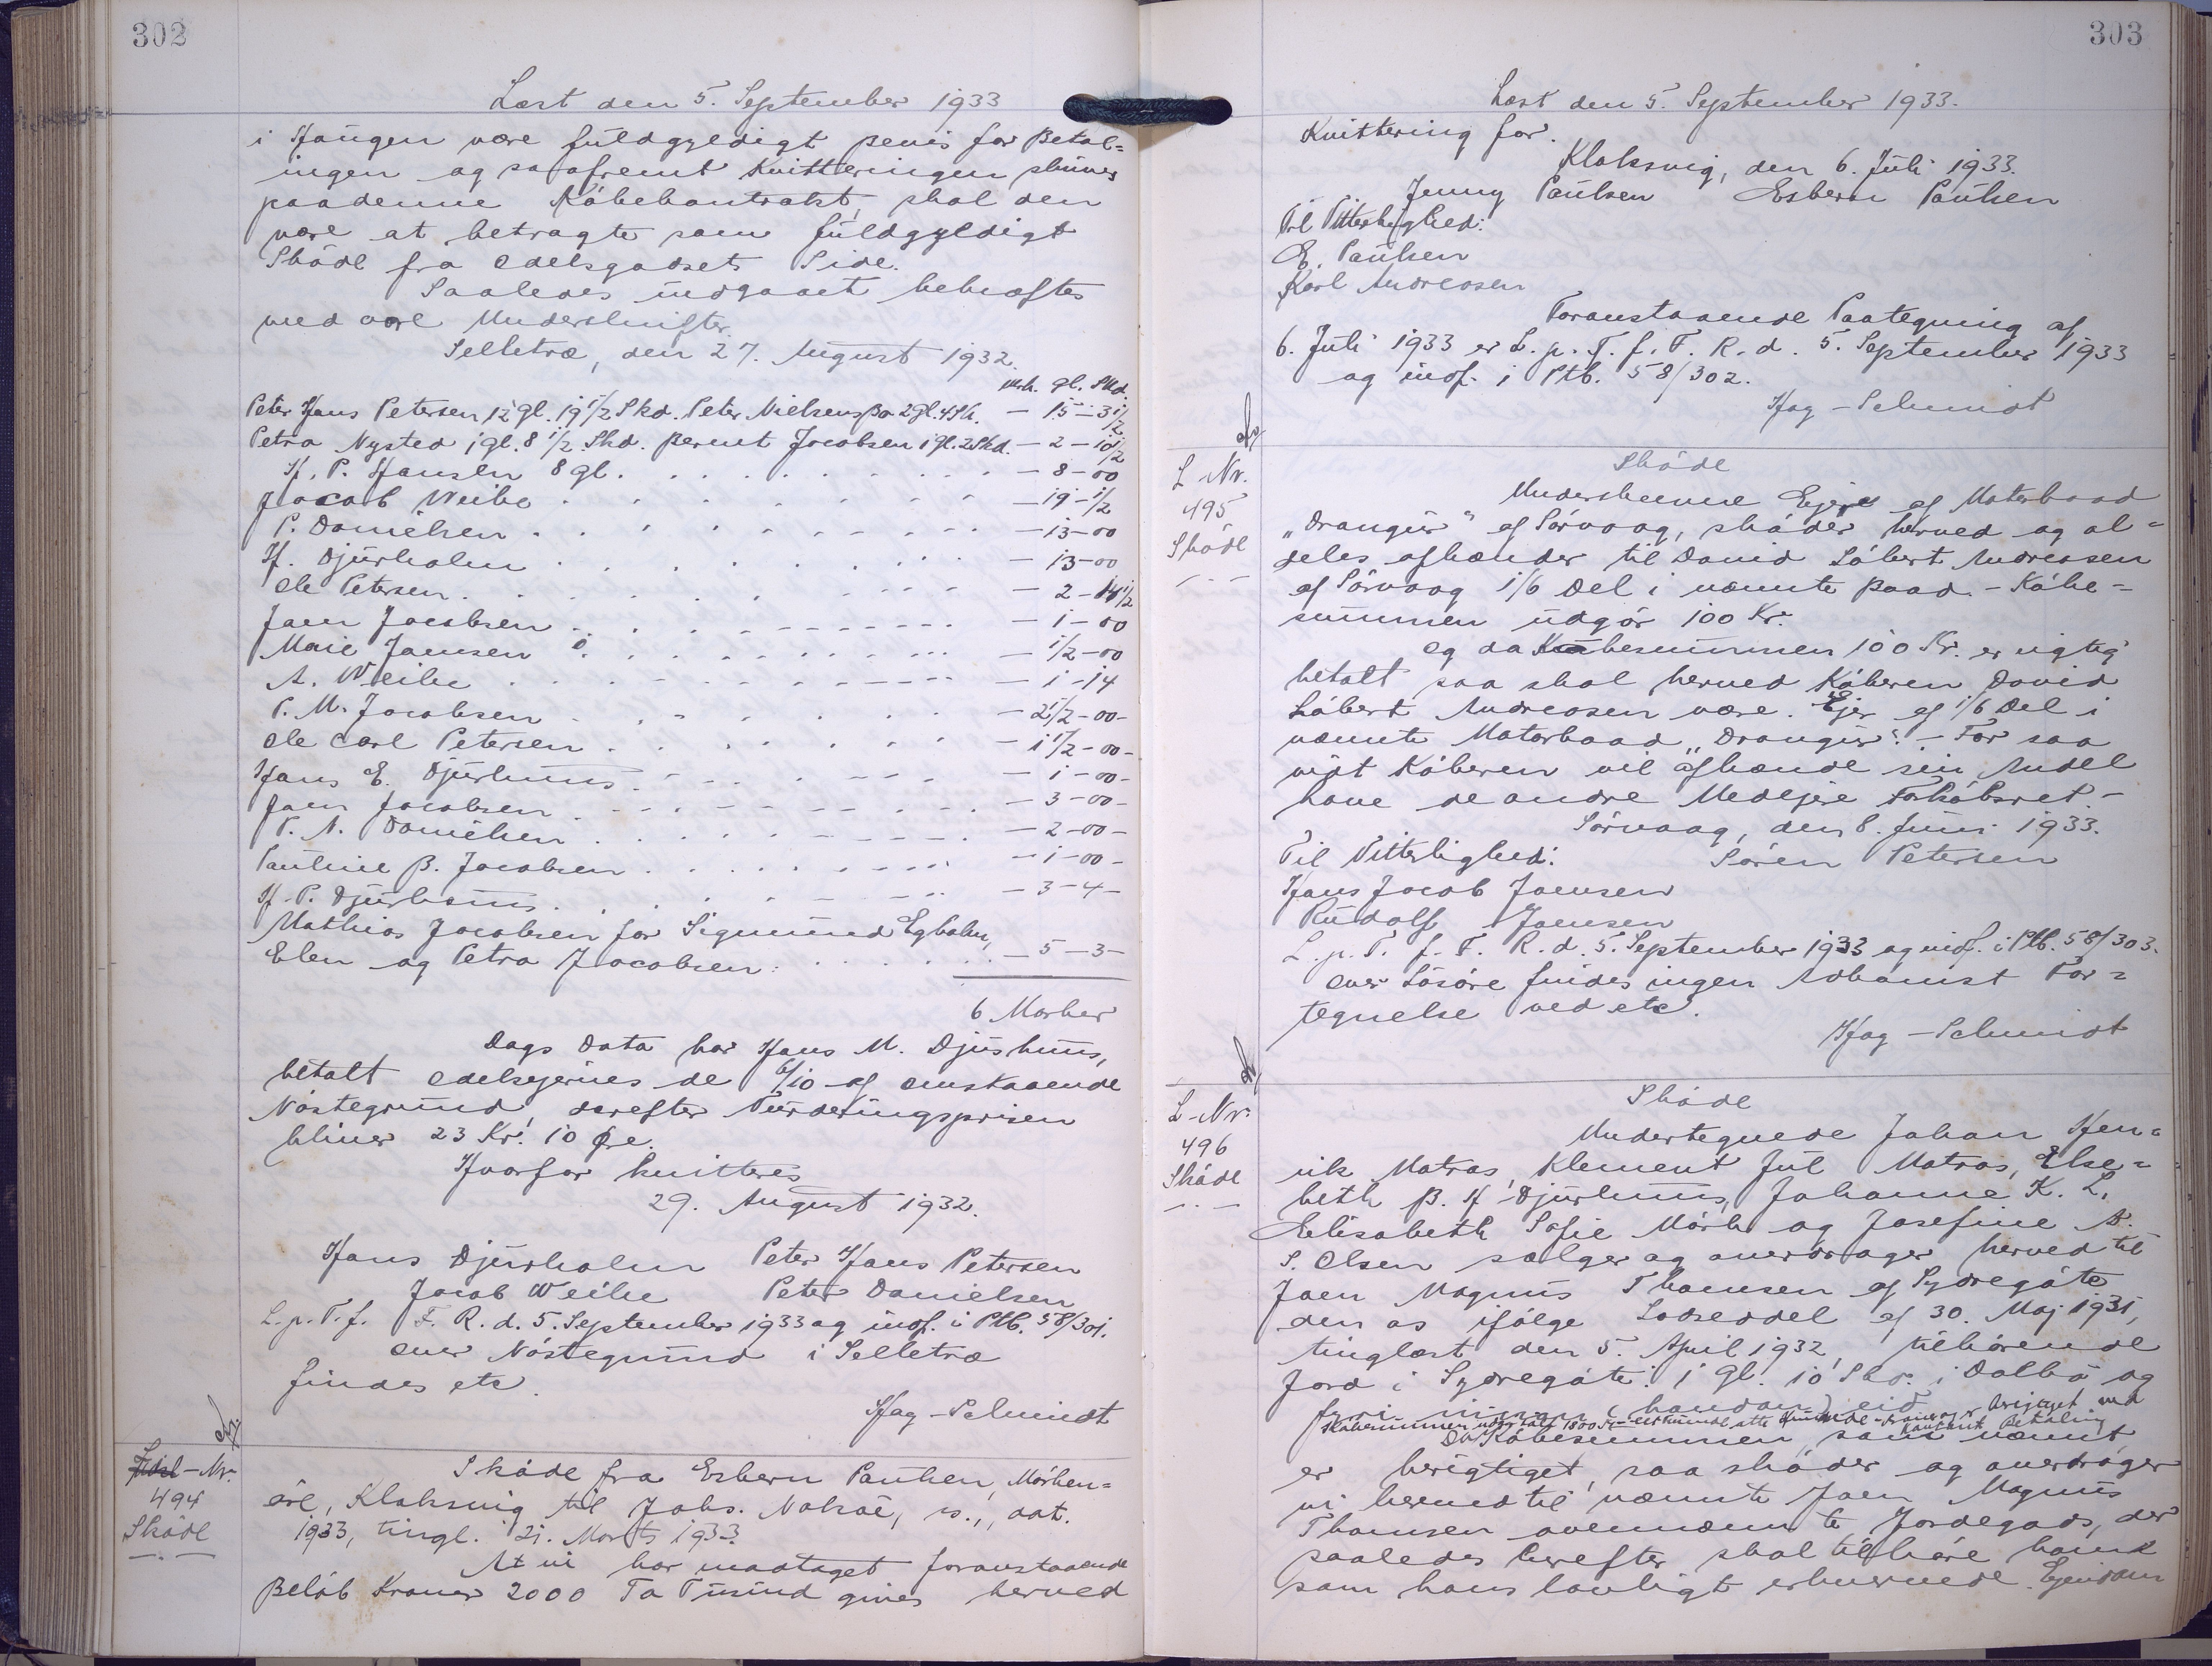 302
Læst den 5. September 1933
i Haugen være fuldgyldigt Bevis for Betal=
ingen og saafremt Kvitteringen skrives
paa denne Købekontrakt, skal den
være at betragte som fuldgyldigt
Skøde fra Odelsgodsets Side.
Saaledes indgaaet bekræftes
med vore Underskrifter.
Selletræ, den 27. August 1932.
Mrk. gl. Skd.
Peter Hans Petersen 12 gl. 19 1/2 Skd. Peter Nielsens Bo 2 gl. 4 Sk. — 15 — 3 1/2
Petra Nysted 1 gl. 8 1/2 Skd. Bernt Jacobsen 1 gl. 2 Skd. — 2 — 10 1/2
H. P. Hansen 8 gl. — 8 — 00
Jacob Weihe — 19 — 1/2
P. Danielsen — 13 — 00
H. Djurholm — 13 — 00
Ole Petersen — 2 — 14 1/2
Joen Jacobsen — 1 — 00
Marie Jensen — 1/2 — 00
A. Weihe — 1 — 14
P. M. Jacobsen — 2 1/2 — 00 —
Ole Carl Petersen — 1 1/2 — 00 —
Hans E. Djurhuus — 1 — 00 —
Joen Jacobsen — 3 — 00 —
P. N. Danielsen — 2 — 00 —
Pauline B. Jacobsen — 1 — 00 —
H. P. Djurhuus — 3 — 4 —
Mathias Jacobsen for Sigmund Egholm,
Elen og Petra Jacobsen: — 5 — 3 —
6 Marker
Dags Dato har Hans M. Djurhuus,
betalt Odelsejernes de 6/10 af omstaaende
Nøstegrund, derefter Vurderingsprisen
bliver 23 Kr. 10 Øre.
Hvorfor kvitteres
29. August 1932.
Hans Djurholm Peter Hans Petersen
Jacob Weihe Peter Danielsen
L. p. T. f. F. R. d. 5. September 1933 og indf. i Ptb. 58/301.
Over Nøstegrund i Selletræ
findes etc.
Hag-Schmidt
L-Nr.
494
Skøde
Skøde fra Esbern Paulsen, Mørken=
øre, Klaksvig til Johs. Nolsøe, s., dat.
1933, tingl. 21. Marts 1933
At vi har modtaget foranstaaende
Beløb Kroner 2000 To Tusind gives herved
303
Læst den 5. September 1933.
Kvittering for.
Klaksvig, den 6. Juli 1933.
Jenny Paulsen Esbern Paulsen
Til Vitterlighed:
E. Paulsen
Karl Andreasen
Foranstaaende Paategning af
6. Juli 1933 er L. p. T. f. F. R. d. 5. September 1933
og indf. i Ptb. 58/302.
Hag-Schmidt
L-Nr.
495
Skøde
Skøde
Underskrevne Ejer af Motorbaad
„Drangur" af Sørvaag, skøder herved og al=
deles afhænder til DavidLøbert Andreasen
af Sørvaag 1/6 Del i nævnte Baad. - Købe-
summen udgør 100 Kr.
Og da Købesummen 100 Kr. er rigtig
betalt saa skal herved Køberen David
Løbert Andreasen være Ejer af 1/6 Del i
nævnte Motorbaad „Drangur". - For saa
vidt Køberen vil afhænde sin Andel
have de andre Medejere Forkøbsret. -
Sørvaag, den 8. Juni 1933.
Til Vitterlighed: Søren Petersen
Hans Jacob Joensen
Rudolf Joensen
L. p. T. f. F. R. d. 5. September 1933 og indf. i Ptb. 58/303.
Over Løsøre findes ingen Adkomst For=
tegnelse ved etc.
Hag-Schmidt
L-Nr.
496
Skøde
Skøde
Undertegnede Johan Hen=
rik Matras, Klement Jul Matras, Else=
beth B. H. Djurhuus, Johanne K. L.
Elisabeth Sofie Mørk og Josefine A.
S. Olsen sælger og overdrager herved til
Joen Magnus Thomsen af Sydregøte
den os ifølge Lodseddel af 30. Maj 1931,
tinglæst den 5. April 1932, tilhørende
Jord i Sydregøte: 1 Gl. 10 Skr. i Dalbø og
Købesummen udgør Kr. 1800 Kr. - eet Tusinde otte Hundrede Kroner er berigtiget ved
kontant Betaling
Da Købesummen, som nævnt
er berigtiget, saa skøder og overdrager
vi herved til nævnte Joen Magnus
Thomsen ovennævnte Jordegods, der
saaledes herefter skal tilhøre ham
som hans lovligt erhvervede Ejendom